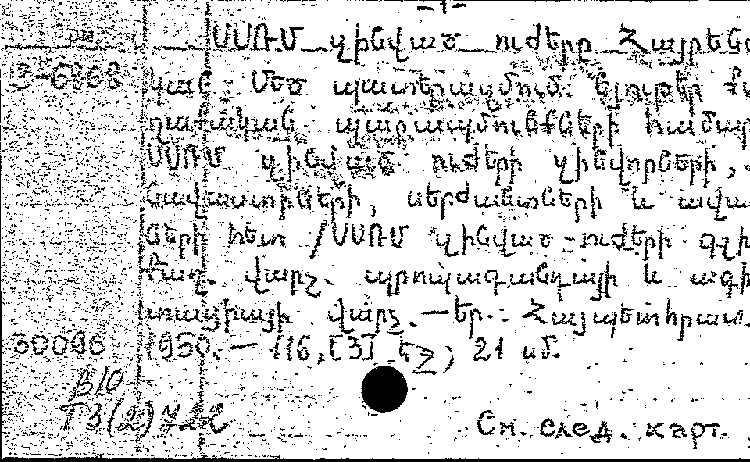 -1-
ՍՍՌՄ զինված ուժերը Հայրենա
3-6868
կան Մեծ պատերազմում. Նյութեր քա
ղաքական պարապմունքների համար
ՍՍՌՄ զինված ուժերի զինվորների,
նավաստիների, սերժանտների և ավա
ների հետ /ՍՍՌՄ զինված ուժերի գլխ
Քաղ. վարչ. պրոպագանդայի և ագի
տացիայի վարչ.—Եր.: Հայպետհրատ.
30096 1950.— 116, [3] էջ, 21 սմ.
В/О
Т3(2)722
См. след. карт.